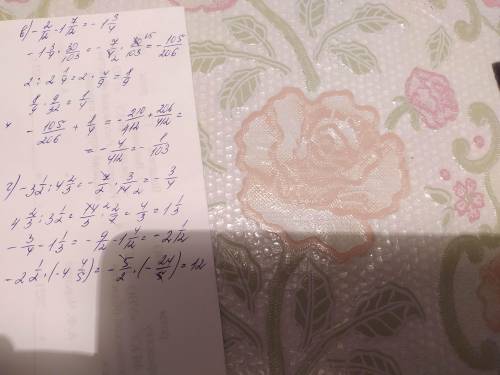 в) - 2/12 - 1 7/12 = - 1 3/4
- 1 3/4 · 30/103 = - 7/4 · 30/103 = - 105/206
2 : 2 1/4 = 2 · 4/9 = 8/9
8/9 · 9/32 = 1/4
- 105/206 + 1/4 = - 210/412 + 206/412 =
= - 4/412 = - 1/103
г) - 3 1/2 : 4 2/3 = - 7/2 · 3/14 = - 3/4
4 2/3 : 3 1/2 = 14/3 · 2/7 = 4/3 = 1 1/3
- 3/4 - 1 1/3 = - 9/12 - 1 4/12 = - 2 1/12
- 2 1/2 · (- 4 4/5) = - 5/2 · (- 24/5) = 12